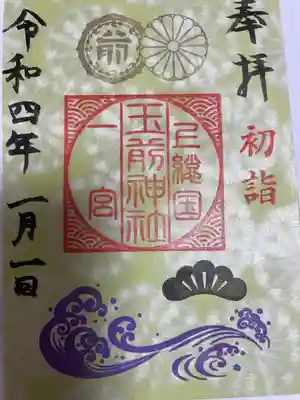 奉拝
初詣
前
上総国
玉前神社
一宮
令和四年 一月一日